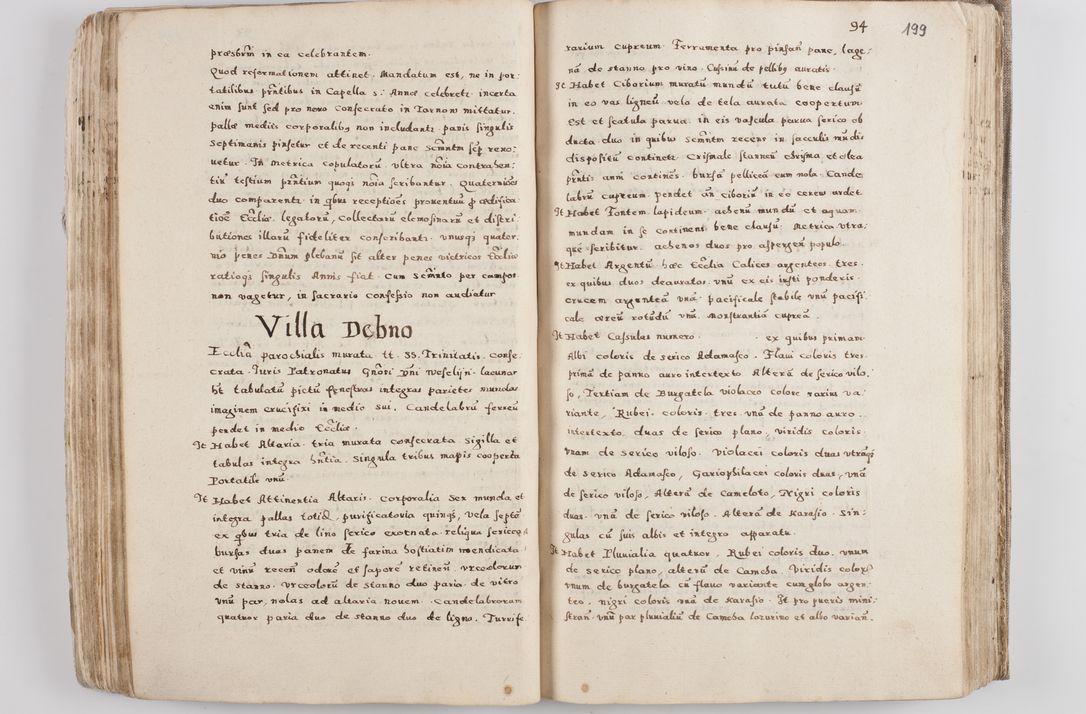 præsbrm̃ in ea celebrantem.
Quod reformationem attinet. Mandatum est, ne in por:
tatilibus pr̃ntibus in Capella S: Annæ celebret: incerta
enim sunt sed pro novo consecrato in Tarnow mittatur.
pallæ mediis corporalibq non includant: panis singulis
Septimanis pinsetur et de recenti pane Scm̃ntm sẽp reno:
uetur. In metrica copulatorũ vltra nõia contrahen:
tiũ testium pr̃ntium quoqȝ nõia scribantur. Quaterniões
duo comparent: in q̃bus receptiões prouentuũ p̱ ædifica:
tioẽ Eccliæ. legatorũ, collectarũ elemosinarũ et distri:
butiones illarũ fideliter conscribant: vnusqȝ quater:
nio penes Dñum plebanũ sit alter penes victricos Eccliæ
ratioqȝ singulis Annis fiat. Cum Scm̃nto per campos
non vagetur, in sacrario confessio non audiatur
Villa Debno
Ecclia parochialis murata tt. SS. Trinitatis. conse:
crata. Iuris Patronatus Gñori Dñi Weselyn. lacunar
hẽt tabulatũ pictũ fenestras integras parietes mundos
imaginem crucifixi in medio sui. Candelabrũ ferreũ
pendet in medio Eccliæ.
It Habet Altaria. tria murata consecrata Sigilla et
tabulas integra hñtia. Singula tribus mapis cooperta
Portatile vnũ
It Habet Attinentia Altaris. Corporalia Sex munda et
integra pallas totid, purificatoria quinqȝ, vela septẽ
ex q̃bus tria de lino serico exornata reliqua sericea
bursas duas panem de farina hostiatim mendicata
et vinũ recen odorẽ et saporẽ retineñ. vrceolorum
de stanno. vrceolorũ de stanno duo paria. de vitro
vnũ par, nolas ad altaria nouem. Candelabrorum
quatuor paria duo de stanno duo de ligno. Turrife
94 199
rarium cupreum. Ferramenta pro pinsañ pane, lage:
nã de stanno pro vino. Cussinũ de pellibq auratis.
It Habet Ciborium muratũ mundũ tutũ bene clausũ
in eo vas ligneũ velo de tela aurata coopertum.
Est et scatula parua. in eis vascula parua serico ob
ducta duo in quibus Scm̃ntm recens in sacculis mũdis
dispositũ continet: Crismale stanneũ chrisma, et olea
pr̃ntis anni continẽs. bursã pelliceã cum nola. Cande
labrũ cupreum pendet añ ciboriũ in eo cereus ardet
It Habet Fontem lapideum. ahenũ mundũ et aquam.
mundam in se continens bene clausũ. Metrica vtra:
que scribitur. ahenos duos pro aspergeñ populo.
It Habet Argentũ hæc Ecclia Calices argenteos tres.
ex quibus duos deauratos. vnũ ex eis iusti ponderis.
crucem argenteã vnã. pacificale stabile vnũ pacifi:
cale æreũ rotũdũ vnũ. Monstrantiã cupreã.
It Habet Casulas numero . ex quibus primam
Albi coloris de serico Adamasco. Flaui coloris tres.
primã de panno auro intertexto Alterã de serico vilo,
so, Tertiam de Burgatela violaceo colore varim va:
riante, Rubei. coloris. tres. vnã de panno auro.
intertexto. duas de serico plano. viridis coloris.
vnam de serico viloso. violacei coloris duas vtrãqȝ
de serico Adamasco, Gariophilacei coloris duas, vnã
de serico viloso, Alterã de Cameloto, Nigri coloris
duas. vnã de serico viloso. Alterã de Karasio. Sin:
gulas cũ suis albis et integro apparatu.
It Habet Pluuialia quatuor. Rubei coloris duo. vnum
de serico plano, alterũ de Camcha. Viridis coloris
vnum de burgatela cũ flauo variante cum globo argen:
teo. nigri coloris vnũ de Karasio. It pro pueris mini:
strañ. vnũ par pluuialiũ de Camcha lazurino et albo variañ.